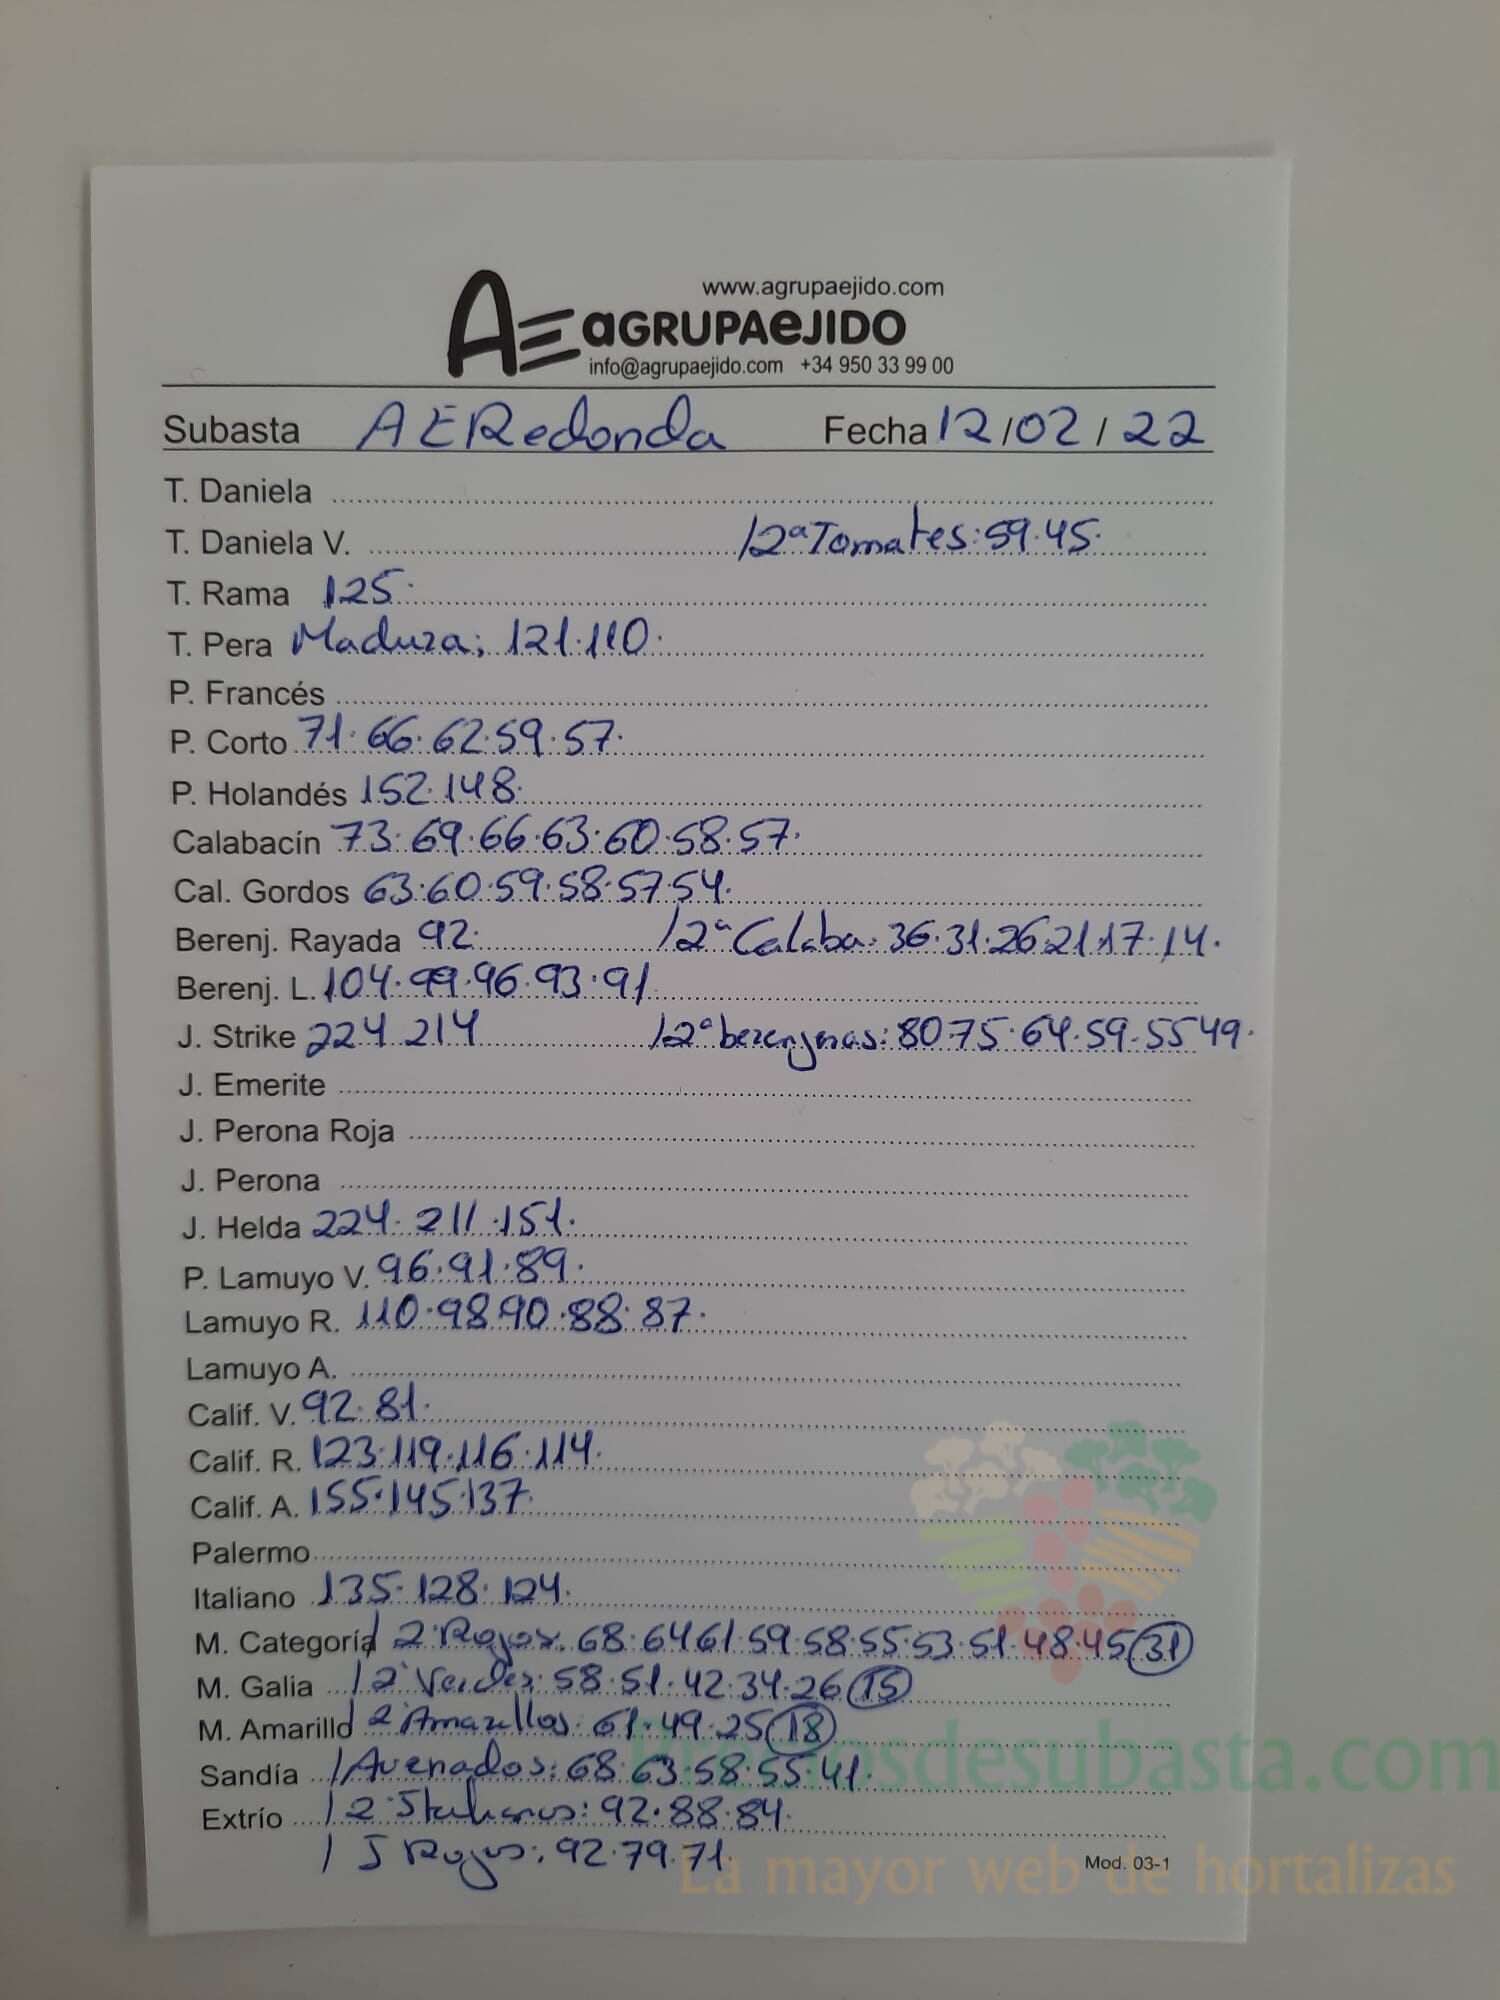 www.agrupaejido.com
AE aGRUPAeJIDO
info@agrupaejido.com +34 950 33 99 00
Subasta AERedonda Fecha 12/02/22
T. Daniela
T. Daniela V. /2ª Tomates: 59.45.
T. Rama 125.
T. Pera Madura; 121.110.
P. Francés
P. Corto 71.66.62.59.57.
P. Holandés 152.148.
Calabacín 73.69.66.63.60.58.57.
Cal. Gordos 63.60.59.58.57.54.
Berenj. Rayada 92. /2ª Calaba: 36.31.26.21.17.14.
Berenj. L. 104.99.96.93.91
J. Strike 224 214 /2ª berenjenas: 80.75.64.59.55 49.
J. Emerite
J. Perona Roja
J. Perona
J. Helda 224.211.151.
P. Lamuyo V. 96.91.89.
Lamuyo R. 110.98.90.88.87.
Lamuyo A.
Calif. V. 92.81.
Calif. R. 123.119.116.114.
Calif. A. 155.145.137.
Palermo
Italiano 135.128.124.
M. Categoría / 2ª Rojos: 68.64 61.59.58.55.53.51.48.45 31
M. Galia / 2ª Verdes: 58.51.42.34.26 15
M. Amarillo / 2ª Amarillos: 61.49.25 18
Sandía / Avenados: 68.63.58.55.41.
Extrío / 2ª Italianos: 92.88.84.
/ J Rojos: 92.79.71.
Mod. 03-1
Preciosdesubasta.com
La mayor web de hortalizas